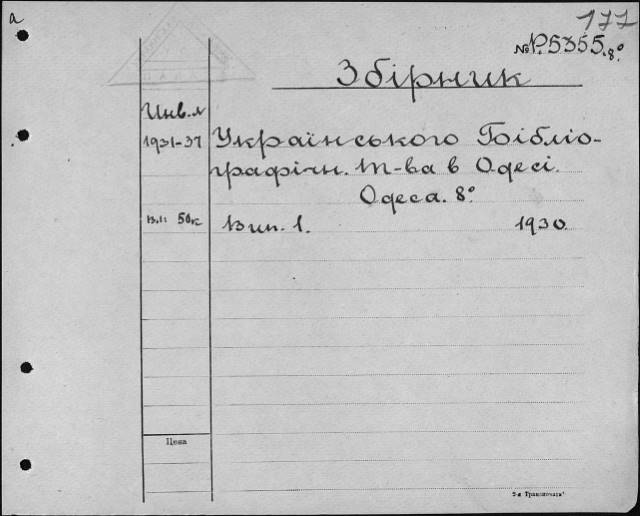 a
177
№ P.5355.8º
Збірник
Инв.л
1931-37
Українського Бібліо-
графічн. т-ва в Одесі.
Одеса. 8º
в.1: 50к
Вип. 1. 1930.
Цена